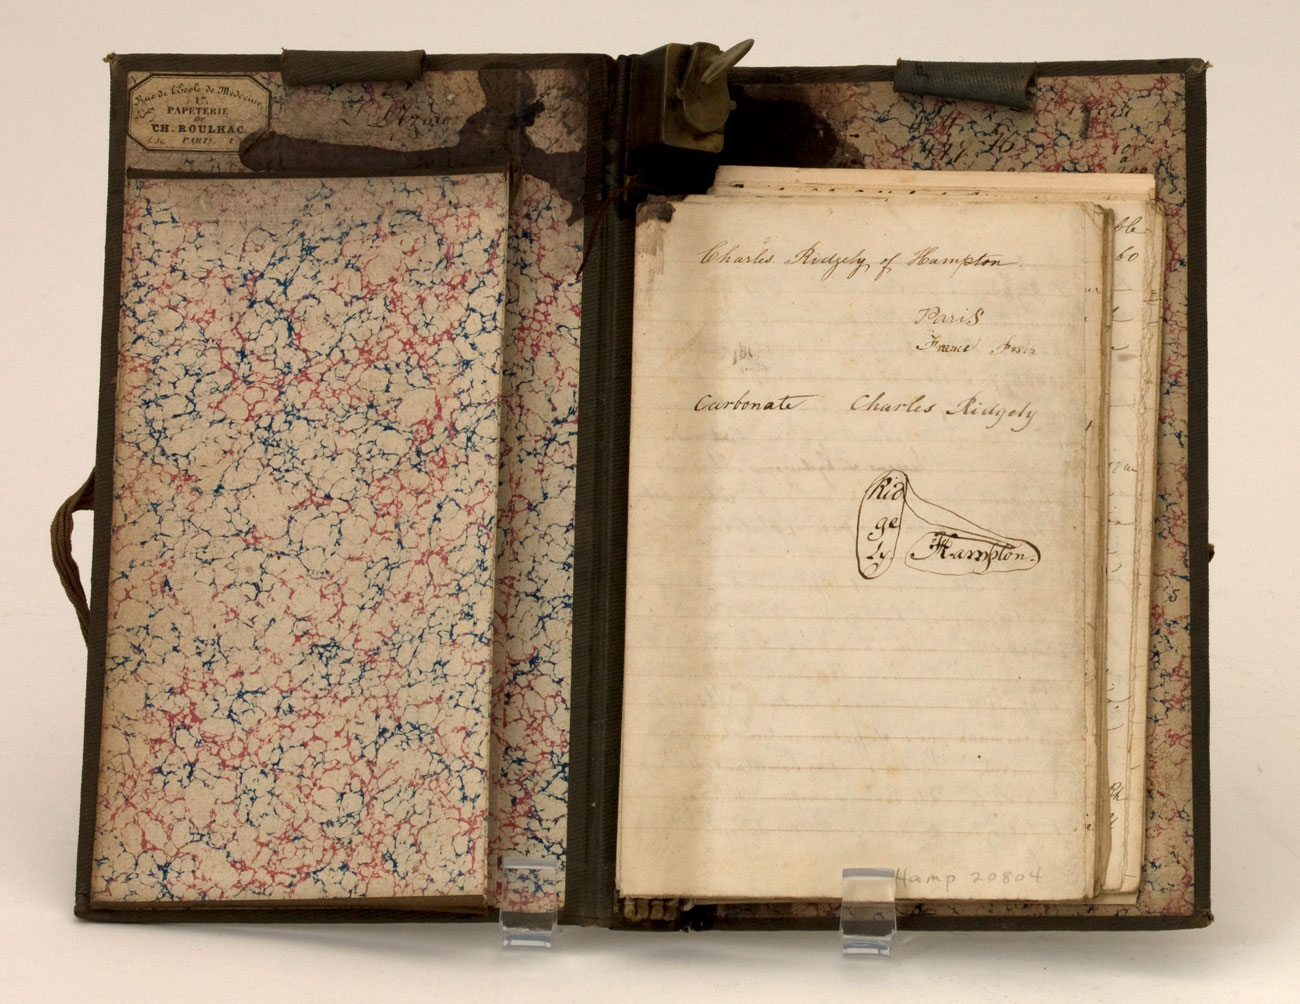 Rue de l'Ecole de Medecine
17.
PAPETERIE
DE
CH. ROULHAC
PARIS.
Charles Ridgely of Hampton
Paris
France
Carbonate Charles Ridgely
Rid
ge
ly
Hampton.
Hamp 20804